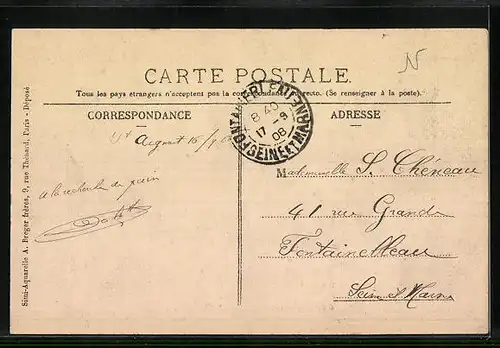 N
CARTE POSTALE
Tous les pays étrangers n'acceptent pas la correspondance au recto. (Se renseigner à la poste).
CORRESPONDANCE
ADRESSE
FONTAINEBLEAU
8 40
17 -9
08
SEINE ET MARNE
St Argent 15/9
Mademoiselle S. Chéneau
à la recherche du pain
41 rue Grande
Fontainebleau
Seine et Marne
Simi-Aquarelle A. Breger frères, 9, rue Thénard, Paris - Déposé